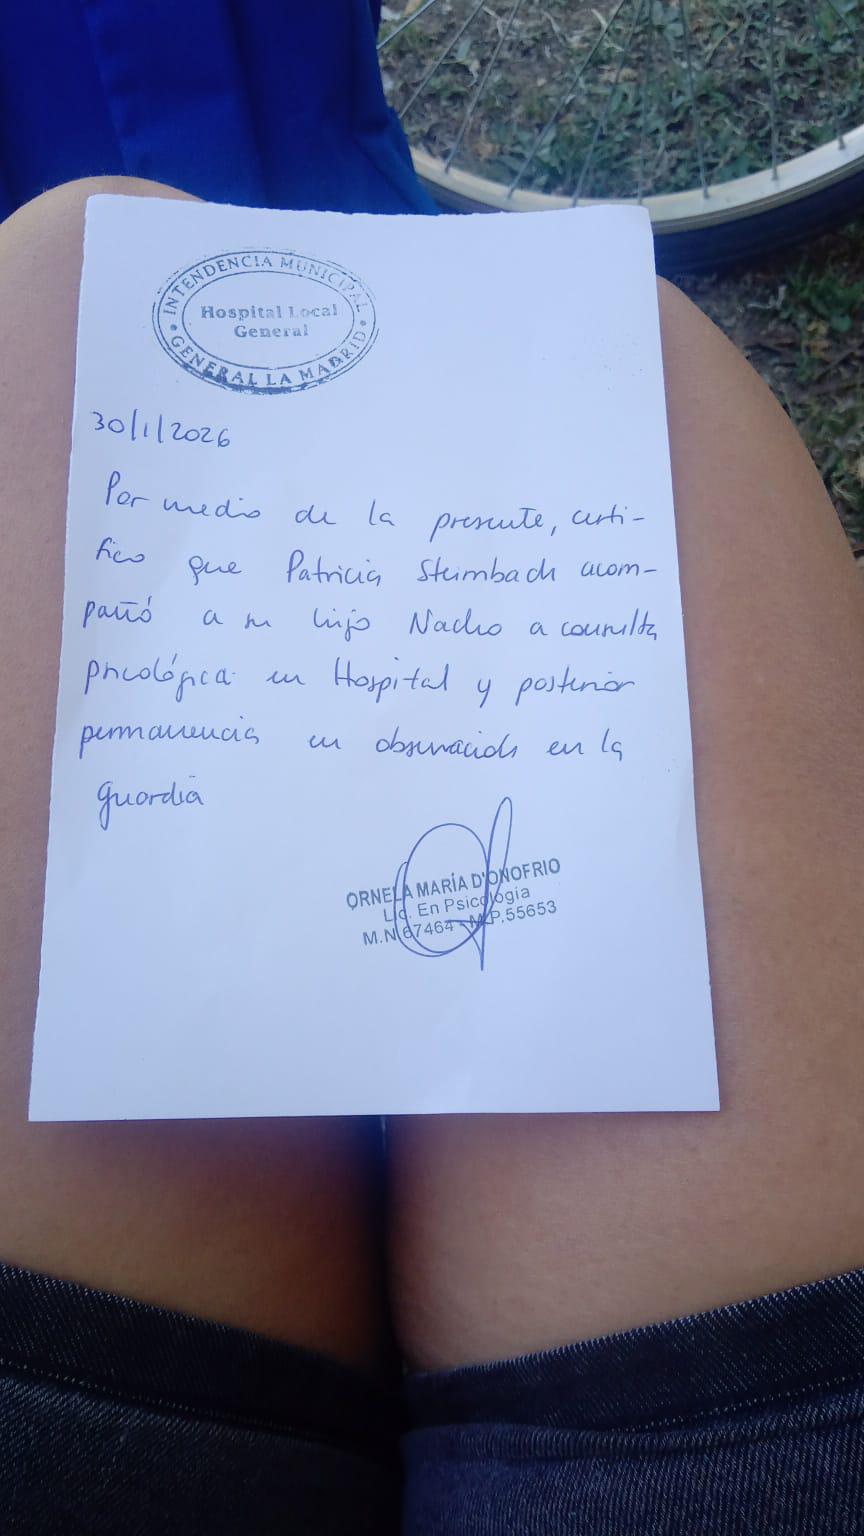 INTENDENCIA MUNICIPAL
Hospital Local
General
GENERAL LA MADRID
30/1/2026
Por medio de la presente, certi-
fico que Patricia Steimbach acom-
pañó a su hijo Nacho a consulta
psicológica en Hospital y posterior
permanencia en observación en la
guardia
ORNELA MARÍA D'ONOFRIO
Lic. En Psicología
M.N.67464 - M.P.55653